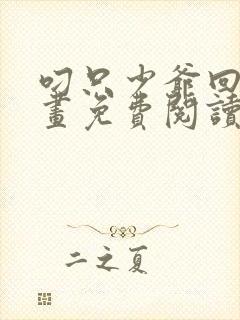 叼只少爺回
畫免費閱讀
二之夏